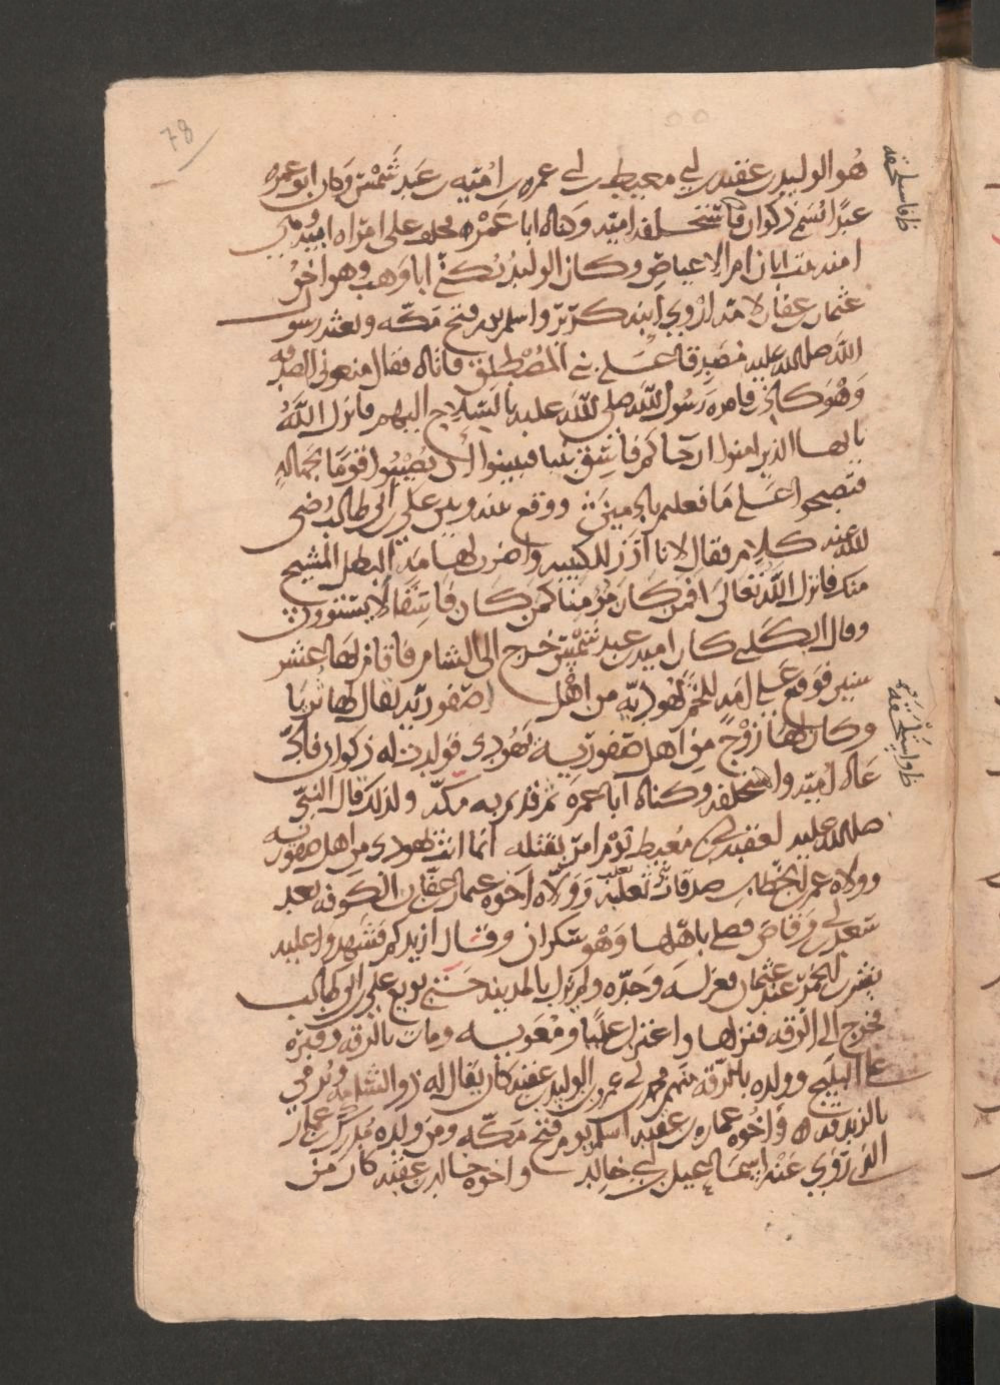 78
هو الوليد بن عقبه بن ابي معيط بن ابي عمرو بن اميه بن عبد شمس وكان ابو عمرو
عبدًا اسمه ذكوان فاستلحقه اميه وكناه ابا عمرو فخلف على امراه اميه
امنه بنت ابان ام الاعياص وكان الوليد يكنى ابا وهب وهو اخو
عثمان بن عفان لامه اروى ابنه كريز واسلم يوم فتح مكه وبعثه رسول
الله صلى الله عليه مصدقا على بني المصطلق فاتاه فقال منعوني الصدقه
وهو كاذب فامر رسول الله صلى الله عليه بالسلاح اليهم فانزل الله
يا ايها الذين امنوا ان جاكم فاسق بنبا فتبينوا ان تصيبوا قوما بجهاله
فتصبحوا على ما فعلتم نادمين ووقع بينه وبين علي بن ابي طالب رضي
الله عنه كلام فقال لانا ارد للكتيبه واضرب لهامه البطل المشيح
منك فانزل الله تعالى افمن كان مومنا كمن كان فاسقا لا يستوون
وقال الكلبي كان اميه بن عبد شمس خرج الى الشام فاقام بها عشر
سنين فوقع على امه للخم يهوديه من اهل صفوريه يقال لها ترنا
وكان لها زوج من اهل صفوريه يهودي فولدت له ذكوان فاد
عاه اميه واستلحقه وكناه ابا عمرو ثم قدم به مكه ولذلك قال النبي
صلى الله عليه لعقبه بن ابي معيط يوم امر بقتله انما انت يهودي من اهل صفوريه
وولاه عمر بن الخطاب صدقات بني تغلب وولاه اخوه عثمان بن عفان الكوفه بعد
سعد بن ابي وقاص فصلى باهلها وهو سكران وقال ازيدكم فشهدوا عليه
بشرب الخمر عند عثمان فعزله وحده ولم يزل بالمدينه حتى بويع علي بن ابي طالب
فخرج الى الرقه فنزلها واعتزل عليا ومعويه ومات بالرقه وقبره
على البليخ وولده بالرقه منهم محمد بن عمرو بن الوليد بن عقبه كان يقال له ذو الشامه ورمي
بالزندقه واخوه عماره بن عقبه اسلم يوم فتح مكه ومن ولده مدرك بن عماره
الذي روى عنه اسماعيل بن ابي خالد واخوه خالد بن عقبه كان من